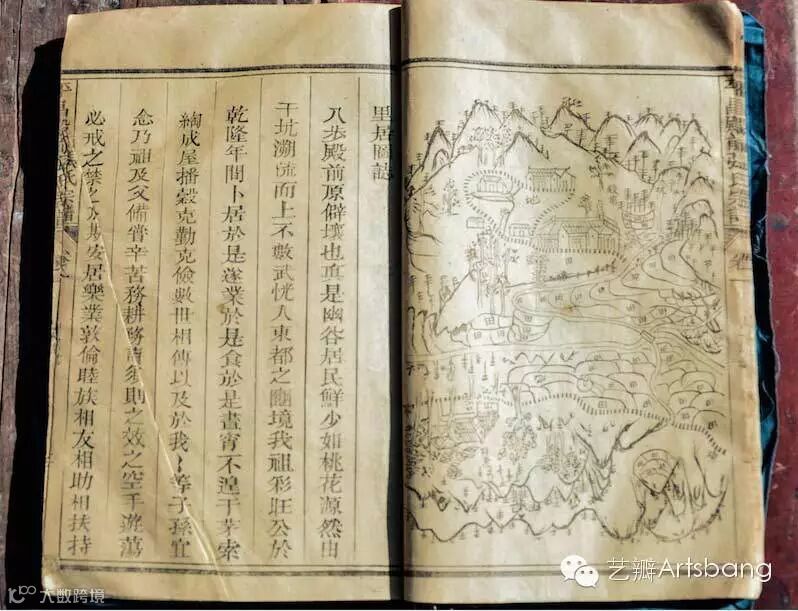 里居圖誌
八步殿前原僻壤也真是幽谷居民鮮少如桃花源然由
干坑溯流而上不數武恍入東都之境我祖彩旺公於
乾隆年間卜居於是遂業於是食於是晝宵不遑于茅索
綯成屋播穀克勤克儉數世相傳以及於我〻等子孫宜
念乃祖及父備嘗辛苦務耕務讀須則之效之空手遊蕩
必戒之禁之安居樂業敦倫睦族相友相助相扶持
地
田
艺瓣Artsbang
大数跨境